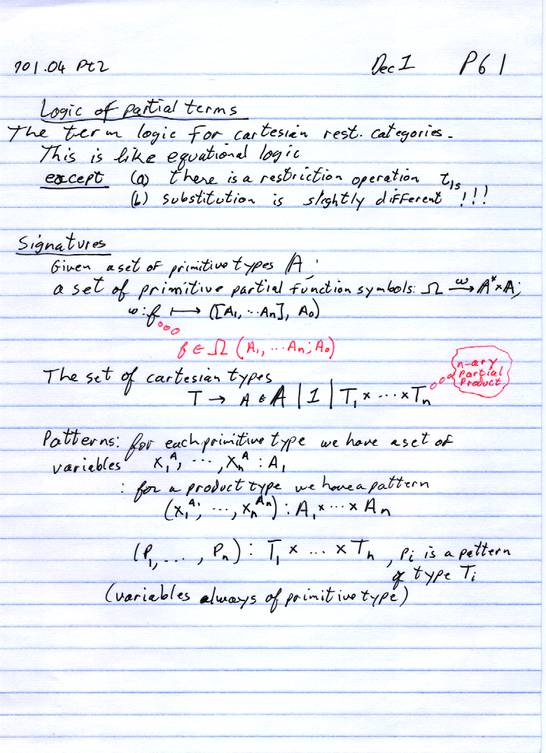 701.04 Pt2 Dec 1 P61
Logic of partial terms
The term logic for cartesian rest. categories.
This is like equational logic
except (a) there is a restriction operation t|s
(b) substitution is slightly different !!!
Signatures
Given a set of primitive types A;
a set of primitive partial function symbols: Ω —ω→ A* × A;
ω: f ⟼ ([A₁, ... Aₙ], A₀)
f ∈ Ω (A₁, ... Aₙ; A₀)
The set of cartesian types
T → A ∈ A | 1 | T₁ × ... × Tₙ
n-ary
partial
product
Patterns: for each primitive type we have a set of
variables x₁ᴬ, ..., xₙᴬ : A,
: for a product type we have a pattern
(x₁^A₁, ..., xₙ^Aₙ) : A₁ × ... × Aₙ
(P₁, ..., Pₙ) : T₁ × ... × Tₙ , pᵢ is a pattern
of type Tᵢ
(variables always of primitive type)